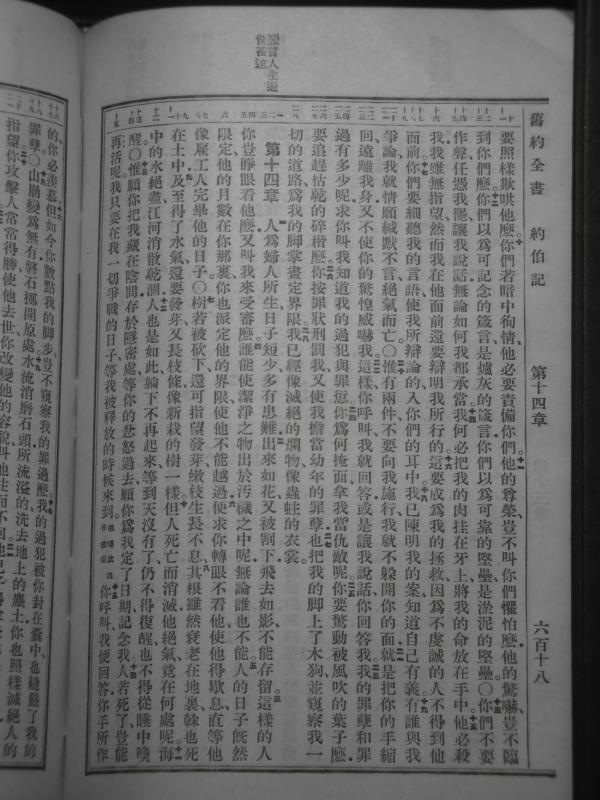 舊約全書　約伯記　第十四章　六百十八
要照樣欺哄他麽你們若暗中徇情他必要責備你們他的尊榮豈不叫你們懼怕麽他的驚嚇豈不臨
到你們麽你們以爲可記念的箴言是爐灰的箴言你們以爲可靠的堅壘是淤泥的堅壘〇你們不要
作聲任憑我罷讓我說話無論如何我都承當我何必把我的肉挂在牙上將我的命放在手中他必殺
我我雖無指望然而我在他面前還要辯明我所行的這要成爲我的拯救因爲不虔誠的人不得到他
面前你們要細聽我的言語使我所辯論的入你們的耳中我已陳明我的案知道自己有義有誰與我
爭論我就情願緘默不言絕氣而亡〇惟有兩件不要向我施行我就不躱開你的面就是把你的手縮
回遠離我身又不使你的驚惶威嚇我這樣你呼叫我就回答或是讓我說話你回答我我的罪孽和罪
過有多少呢求你叫我知道我的過犯與罪愆你爲何掩面拿我當仇敵呢你要驚動被風吹的葉子麽
要追趕枯乾的碎稭麽你按罪狀刑罰我又使我擔當幼年的罪孽也把我的脚上了木狗並窺察我一
切的道路爲我的脚掌畫定界限我已經像滅絕的爛物像蟲蛀的衣裳
第十四章　人爲婦人所生日子短少多有患難出來如花又被割下飛去如影不能存留這樣的人
你豈睜眼看他麽又叫我來受審麽誰能使潔淨之物出於汚穢之中呢無論誰也不能人的日子旣然
限定他的月數在你那裏你也派定他的界限使他不能越過便求你轉眼不看他使他得歇息直等他
像雇工人完畢他的日子〇樹若被砍下還可指望發芽嫩枝生長不息其根雖然衰老在地裏榦也死
在土中及至得了水氣還要發芽又長枝條像新栽的樹一樣但人死亡而消滅他絕氣竟在何處呢海
中的水絕盡江河消散乾涸人也是如此躺下不再起來等到天沒有了仍不得復醒也不得從睡中喚
醒〇惟願你把我藏在陰間存於隱密處等你的忿怒過去願你爲我定了日期記念我人若死了豈能
再活呢我只要在我一切爭戰的日子等我被釋放的時候來到你呼叫我便回答你手所作
的你必羨慕但如今你數點我的脚步豈不窺察我的罪過麽我的過犯被你封在囊中也縫嚴了我的
罪孽〇山崩變爲無有磐石挪開原處水流消磨石頭所流溢的洗去地上的塵土你也照樣滅絕人的
指望你攻擊人常常得勝使他去世你改變他的容貌叫他往而不回